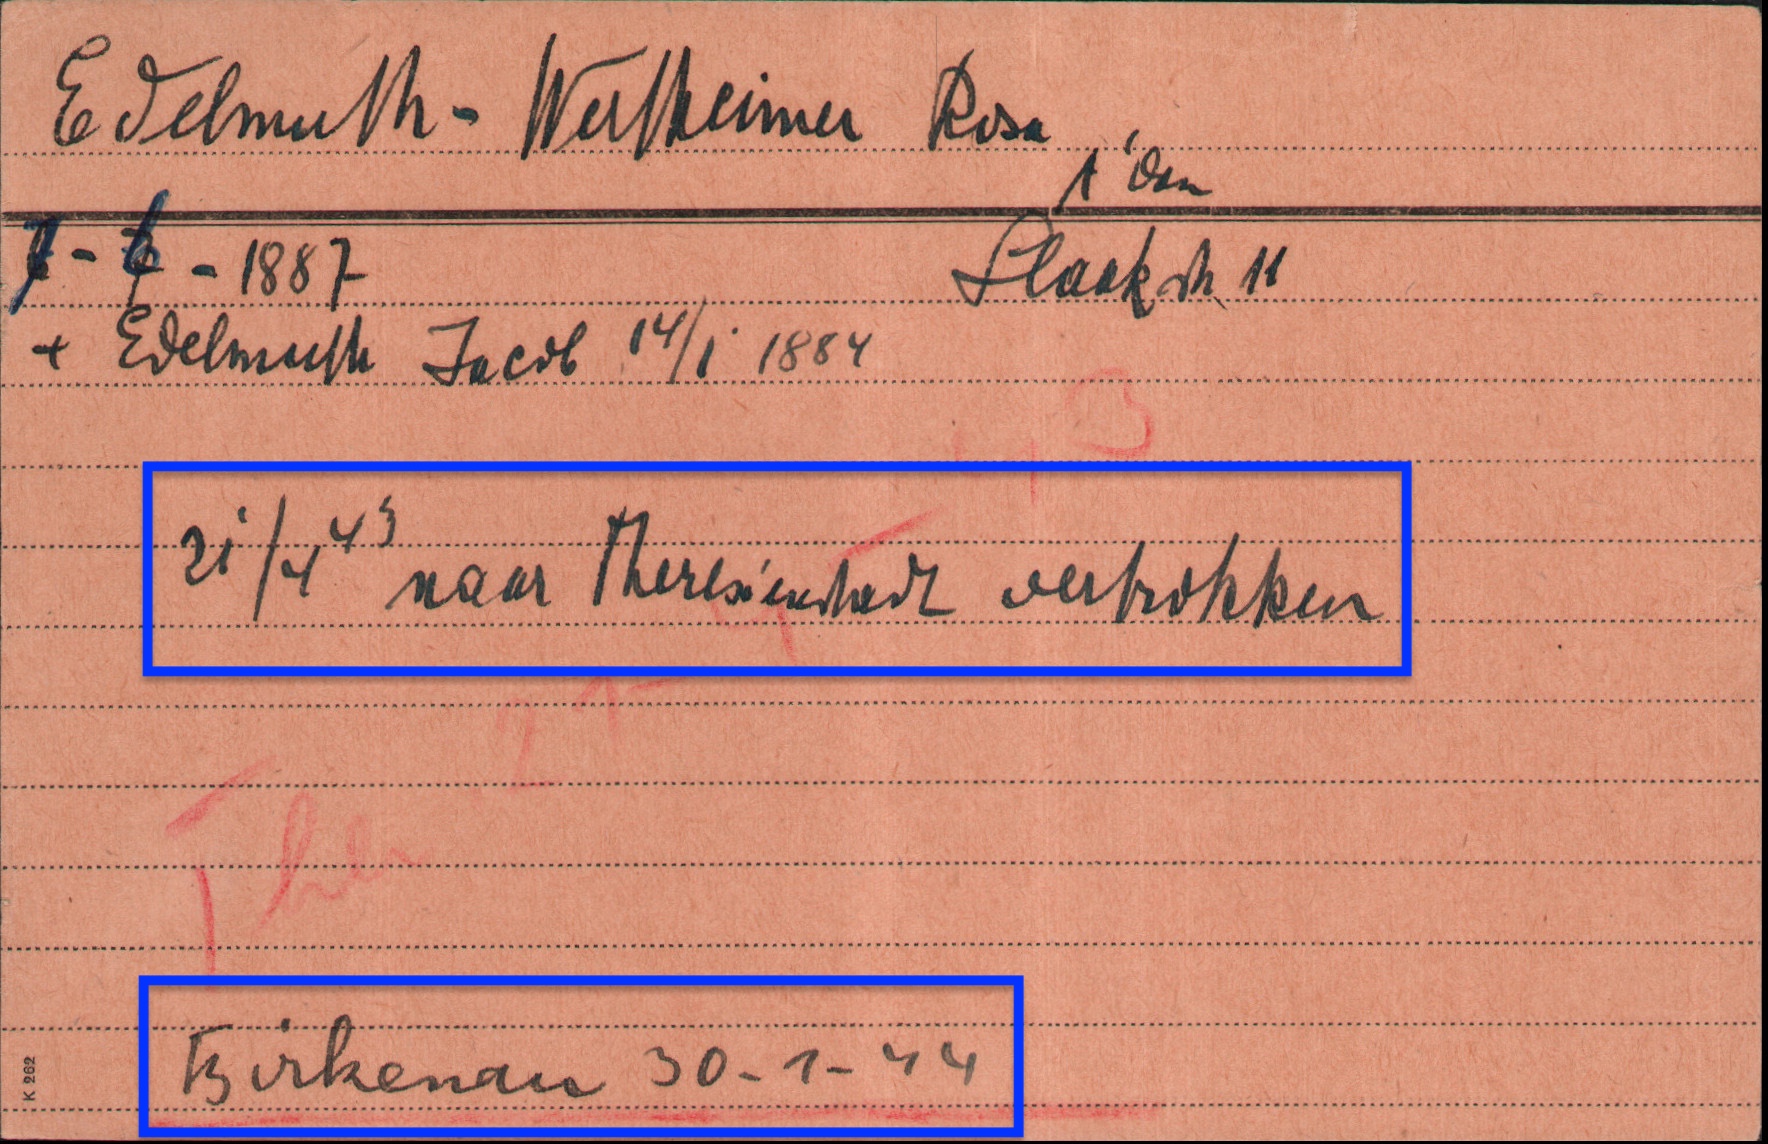 Edelmuth - Wertheimer Rosa
A'dam
7 - 6 - 1887 Slaakstr 11
+ Edelmuth Jacob 14/1 1884
21/4 43 naar Theresienstadt vertrokken
Ther 21-4-43
Birkenau 30-1-44
K 262